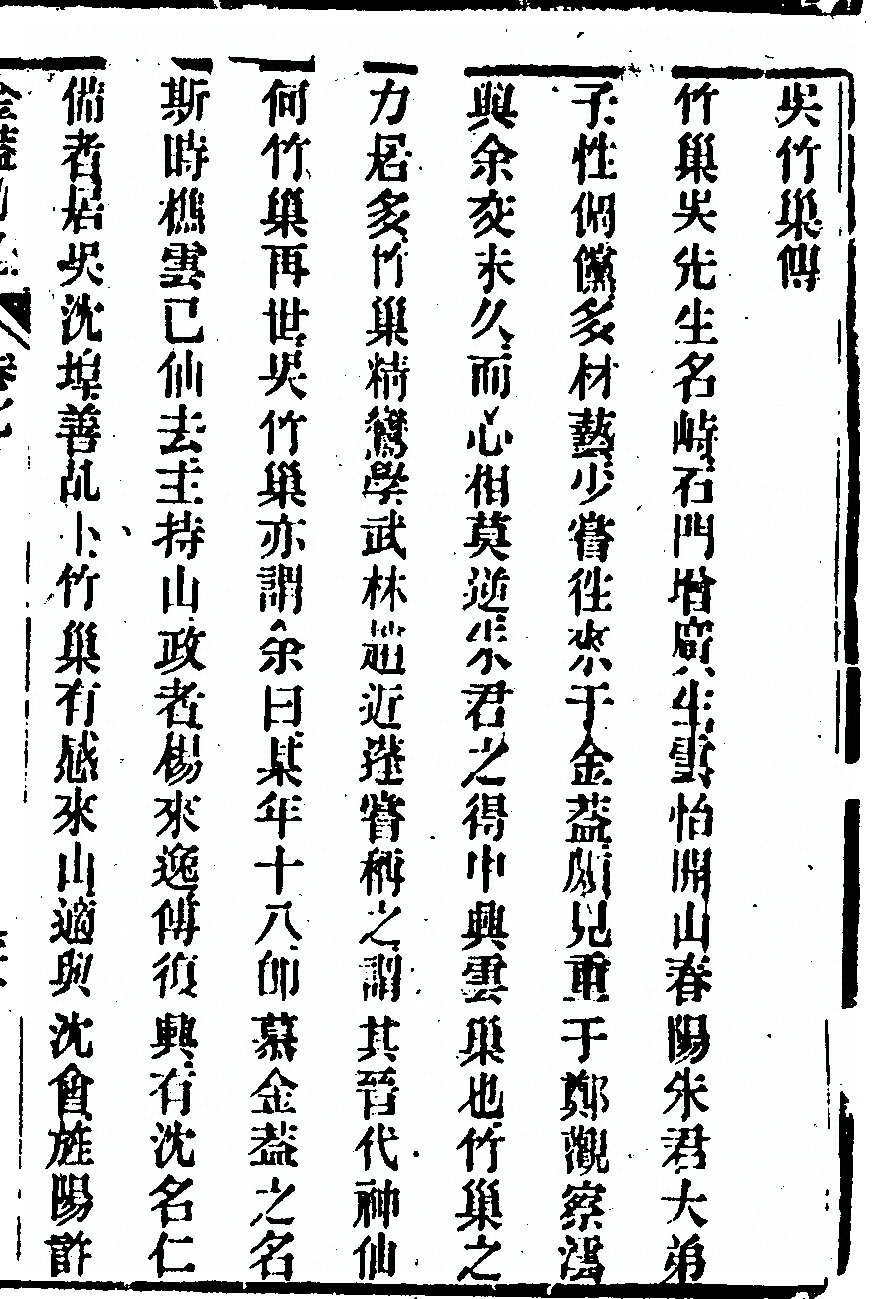 吳竹巢傳
竹巢吳先生名峙石門增廣生雲怡開山春陽朱君大弟
子性倜儻多材藝少嘗往來于金蓋頗見重于鄭觀察
與余交未久而心相莫逆朱君之得中興雲巢也竹巢之
力居多竹巢精鸞學武林趙近蓬嘗稱之謂其晉代神仙
何竹巢再世吳竹巢亦謂余曰某年十八卽慕金蓋之名
斯時樵雲已仙去主持山政者楊來逸傳復興有沈名仁
備者居吳沈埠善乩卜竹巢有感來山適與沈會旌陽許
金蓋